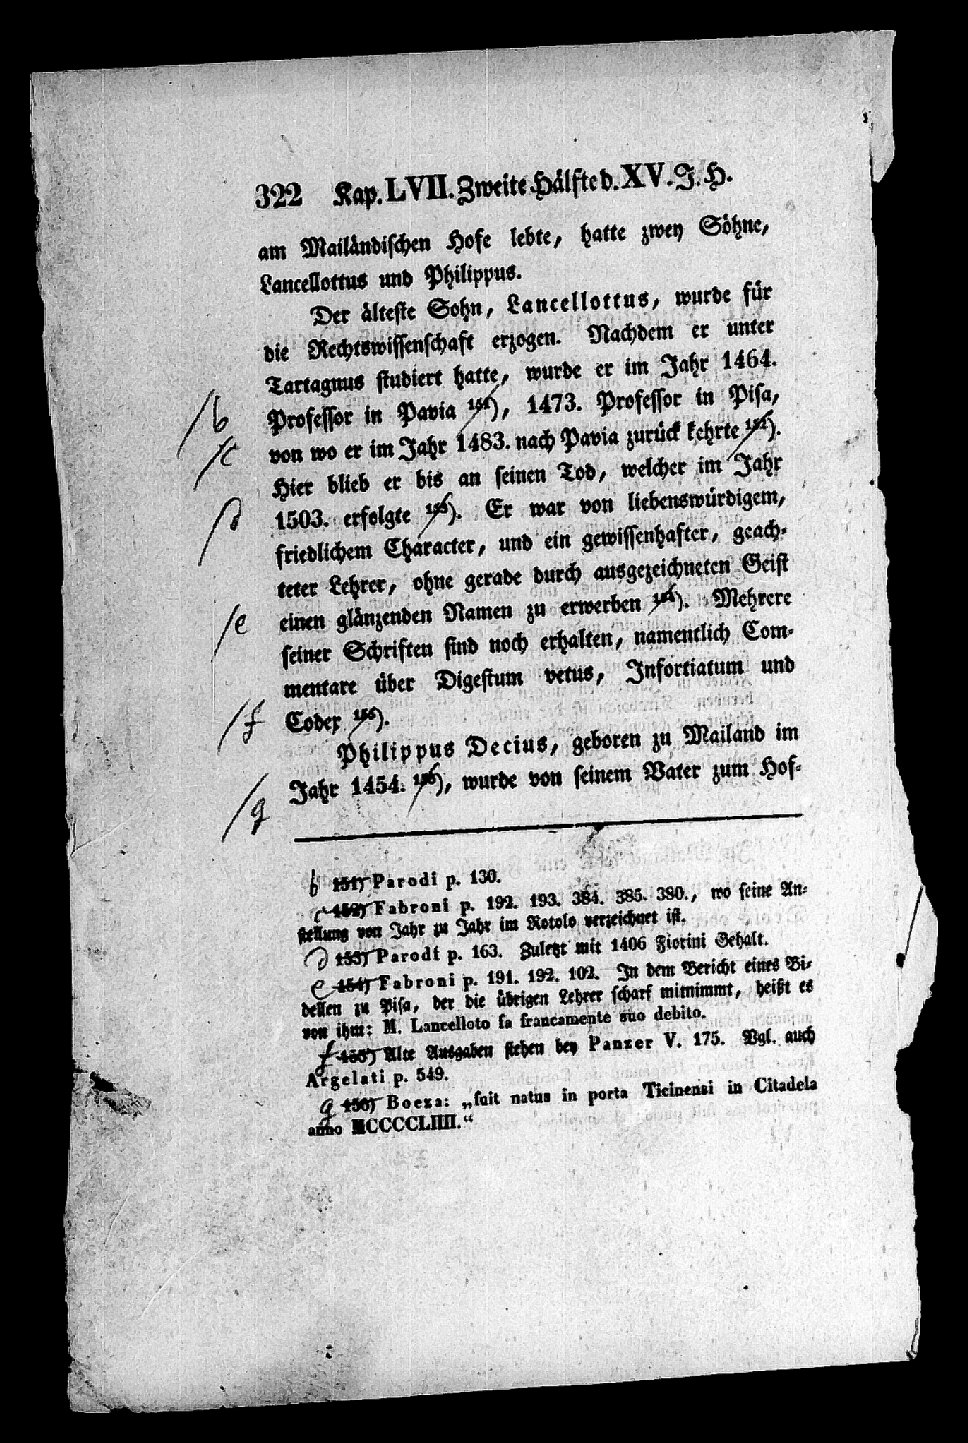 322 Kap. LVII. Zweite Hälfte d. XV. J. H.
am Mailändischen Hofe lebte, hatte zwey Söhne,
Lancellottus und Philippus.
Der älteste Sohn, Lancellottus, wurde für
die Rechtswissenschaft erzogen. Nachdem er unter
Tartagnus studiert hatte, wurde er im Jahr 1464.
/b Professor in Pavia 151), 1473. Professor in Pisa,
/c von wo er im Jahr 1483. nach Pavia zurück kehrte 152).
Hier blieb er bis an seinen Tod, welcher im Jahr
/d 1503. erfolgte 153). Er war von liebenswürdigem,
friedlichem Character, und ein gewissenhafter, geach-
teter Lehrer, ohne gerade durch ausgezeichneten Geist
/e einen glänzenden Namen zu erwerben 154). Mehrere
seiner Schriften sind noch erhalten, namentlich Com-
mentare über Digestum vetus, Infortiatum und
/f Codex 155).
Philippus Decius, geboren zu Mailand im
/g Jahr 1454. 156), wurde von seinem Vater zum Hof-
b 151) Parodi p. 130.
c 152) Fabroni p. 192. 193. 384. 385. 380., wo seine An-
stellung von Jahr zu Jahr im Rotolo verzeichnet ist.
d 153) Parodi p. 163. Zuletzt mit 1406 Fiorini Gehalt.
e 154) Fabroni p. 191. 192. 102. In dem Bericht eines Bi-
dellen zu Pisa, der die übrigen Lehrer scharf mitnimmt, heißt es
von ihm: M. Lancelloto fa francamente suo debito.
f 155) Alte Ausgaben stehen bey Panzer V. 175. Vgl. auch
Argelati p. 549.
g 156) Boeza: „fuit natus in porta Ticinensi in Citadela
anno MCCCCLIIII.“